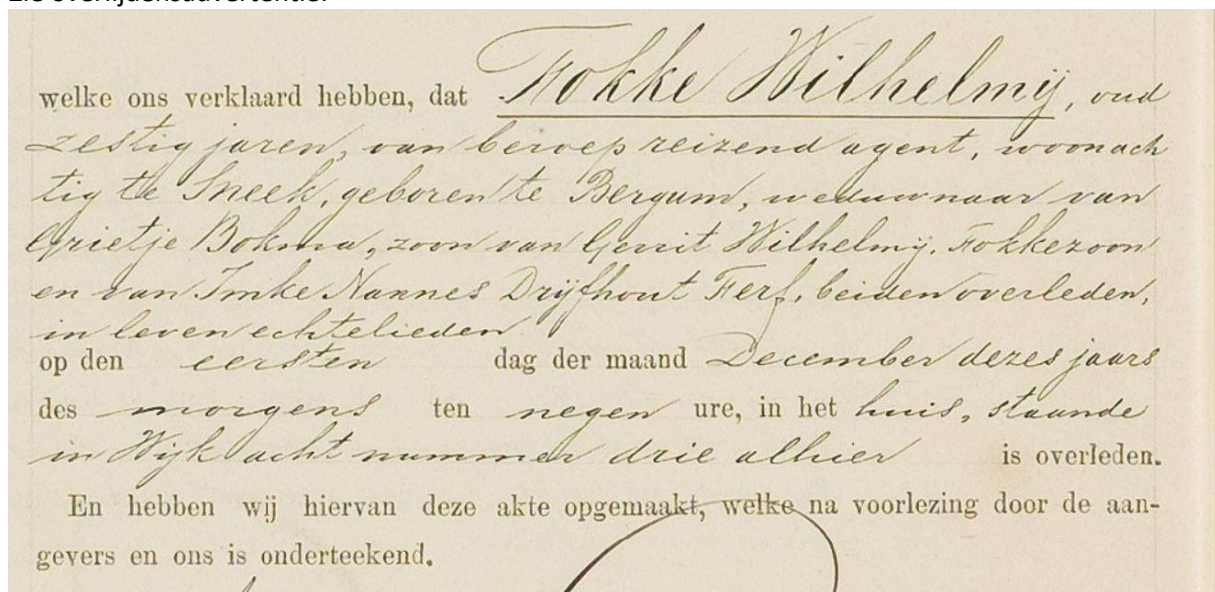 welke ons verklaard hebben, dat Fokke Wilhelmij, oud
zestig jaren, van beroep reizend agent, woonach
tig te Sneek, geboren te Bergum, weduwnaar van
Grietje Bokma, zoon van Gerrit Wilhelmij, Fokkezoon
en van Imke Nannes Drijfhout Ferf, beiden overleden,
in leven echtelieden
op den eersten dag der maand December dezes jaars
des morgens ten negen ure, in het huis, staande
in Wijk acht nummer drie alhier is overleden.
En hebben wij hiervan deze akte opgemaakt, welke na voorlezing door de aan-
gevers en ons is onderteekend.